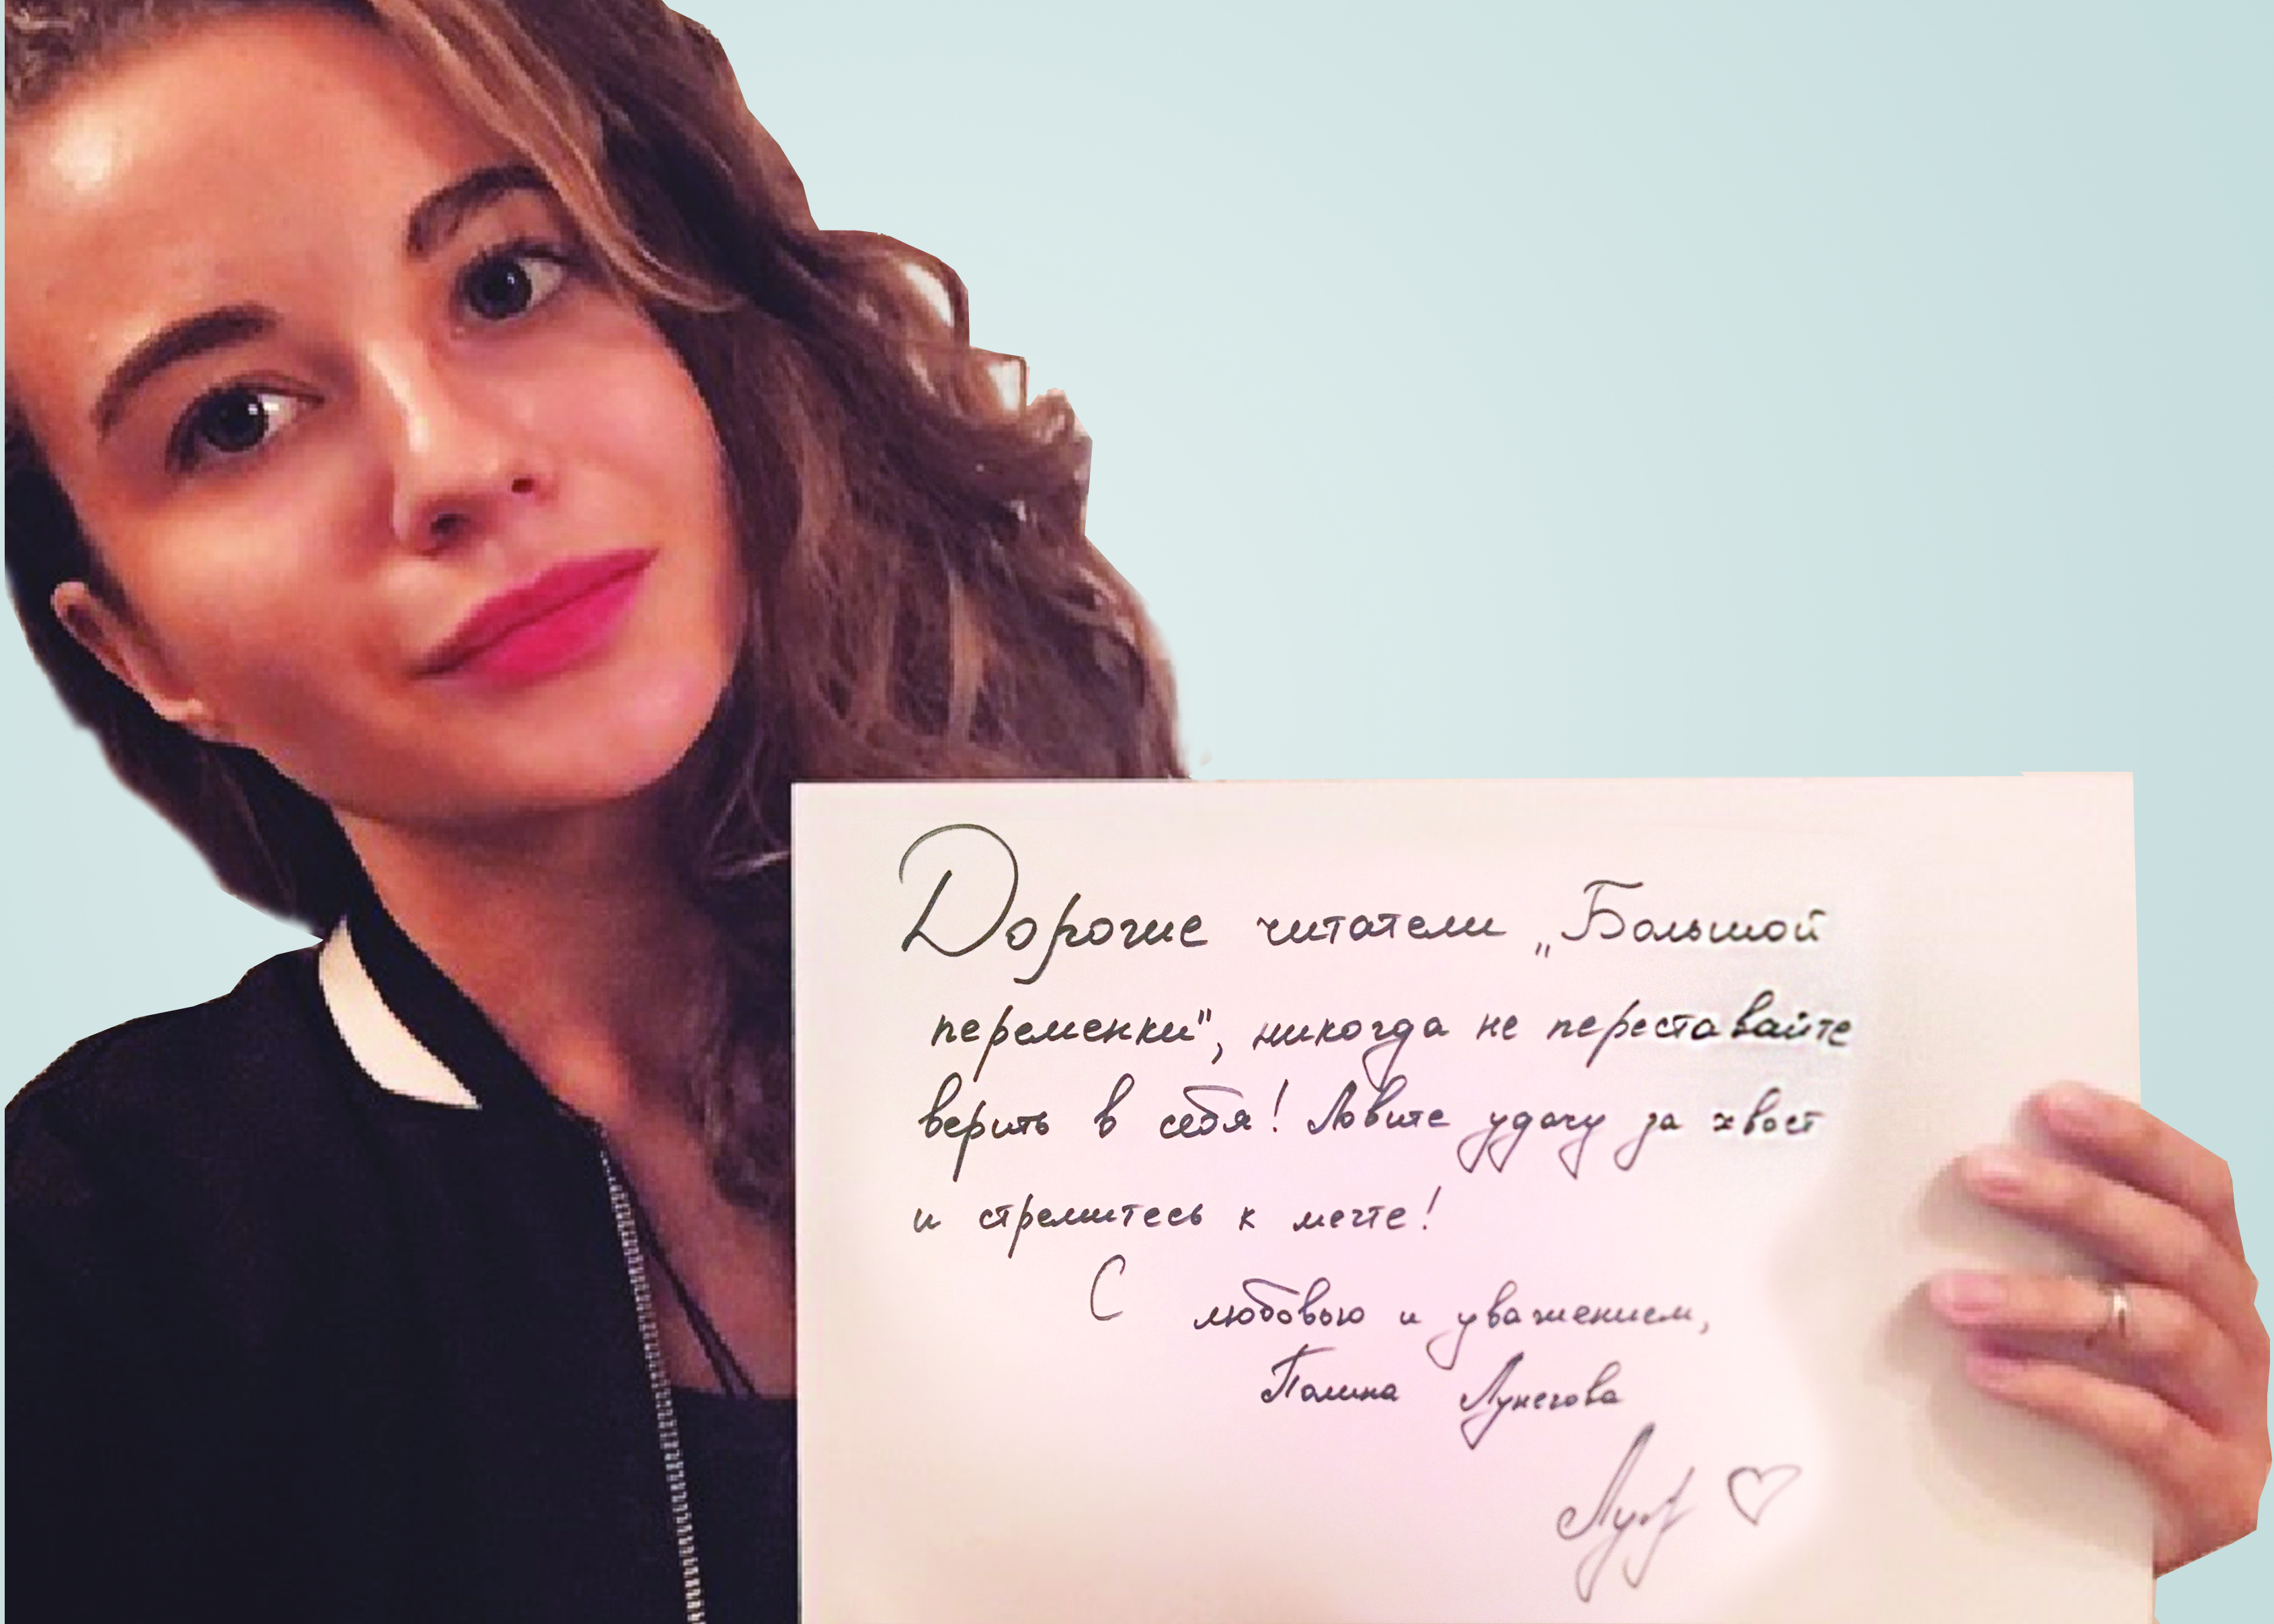 Дорогие читатели „Большой
переменки", никогда не переставайте
верить в себя! Ловите удачу за хвост
и стремитесь к мечте!
С любовью и уважением,
Полина Лунегова